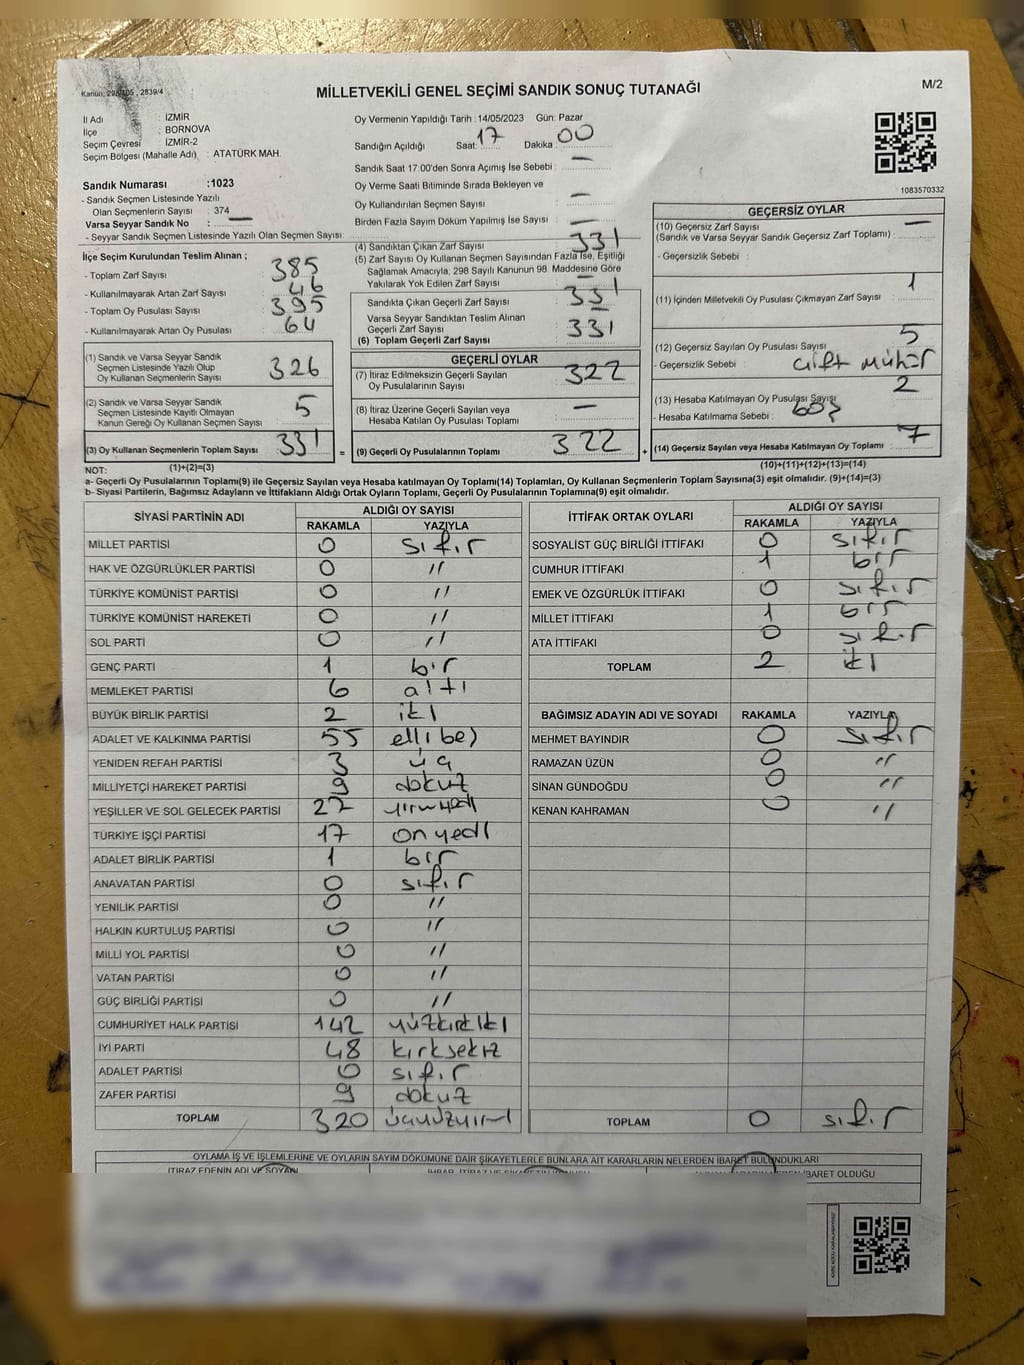 Kanun; 298/105, 2839/4
MİLLETVEKİLİ GENEL SEÇİMİ SANDIK SONUÇ TUTANAĞI
M/2
İl Adı : İZMİR
İlçe : BORNOVA
Seçim Çevresi : İZMİR-2
Seçim Bölgesi (Mahalle Adı) : ATATÜRK MAH.
Oy Vermenin Yapıldığı Tarih : 14/05/2023 Gün: Pazar
Sandığın Açıldığı Saat: 17 Dakika: 00
Sandık Saat 17:00'den Sonra Açımış İse Sebebi : —
Oy Verme Saati Bitiminde Sırada Bekleyen ve
Oy Kullandırılan Seçmen Sayısı : —
Birden Fazla Sayım Döküm Yapılmış İse Sayısı : —
1083570332
Sandık Numarası : 1023
- Sandık Seçmen Listesinde Yazılı
Olan Seçmenlerin Sayısı : 374
Varsa Seyyar Sandık No : —
- Seyyar Sandık Seçmen Listesinde Yazılı Olan Seçmen Sayısı:
İlçe Seçim Kurulundan Teslim Alınan ;
- Toplam Zarf Sayısı : 385
- Kullanılmayarak Artan Zarf Sayısı : 46
- Toplam Oy Pusulası Sayısı : 395
- Kullanılmayarak Artan Oy Pusulası : 64
(1) Sandık ve Varsa Seyyar Sandık
Seçmen Listesinde Yazılı Olup
Oy Kullanan Seçmenlerin Sayısı : 326
(2) Sandık ve Varsa Seyyar Sandık
Seçmen Listesinde Kayıtlı Olmayan
Kanun Gereği Oy Kullanan Seçmen Sayısı : 5
(3) Oy Kullanan Seçmenlerin Toplam Sayısı : 331 =
(4) Sandıktan Çıkan Zarf Sayısı : 331
(5) Zarf Sayısı Oy Kullanan Seçmen Sayısından Fazla İse, Eşitliği
Sağlamak Amacıyla, 298 Sayılı Kanunun 98. Maddesine Göre
Yakılarak Yok Edilen Zarf Sayısı : —
Sandıkta Çıkan Geçerli Zarf Sayısı : 331
Varsa Seyyar Sandıktan Teslim Alınan
Geçerli Zarf Sayısı : —
(6) Toplam Geçerli Zarf Sayısı : 331
GEÇERLİ OYLAR
(7) İtiraz Edilmeksizin Geçerli Sayılan
Oy Pusulalarının Sayısı : 322
(8) İtiraz Üzerine Geçerli Sayılan veya
Hesaba Katılan Oy Pusulası Toplamı : —
(9) Geçerli Oy Pusulalarının Toplamı : 322 +
GEÇERSİZ OYLAR
(10) Geçersiz Zarf Sayısı : —
(Sandık ve Varsa Seyyar Sandık Geçersiz Zarf Toplamı) :
- Geçersizlik Sebebi :
(11) İçinden Milletvekili Oy Pusulası Çıkmayan Zarf Sayısı : 1
(12) Geçersiz Sayılan Oy Pusulası Sayısı : 5
- Geçersizlik Sebebi : çift mühür
(13) Hesaba Katılmayan Oy Pusulası Sayısı : 2
- Hesaba Katılmama Sebebi : boş
(14) Geçersiz Sayılan veya Hesaba Katılmayan Oy Toplamı : 7
NOT: (1)+(2)=(3) (10)+(11)+(12)+(13)=(14)
a- Geçerli Oy Pusulalarının Toplamı(9) ile Geçersiz Sayılan veya Hesaba katılmayan Oy Toplamı(14) Toplamları, Oy Kullanan Seçmenlerin Toplam Sayısına(3) eşit olmalıdır. (9)+(14)=(3)
b- Siyasi Partilerin, Bağımsız Adayların ve İttifakların Aldığı Ortak Oyların Toplamı, Geçerli Oy Pusulalarının Toplamına(9) eşit olmalıdır.
SİYASİ PARTİNİN ADI ALDIĞI OY SAYISI
RAKAMLA YAZIYLA
MİLLET PARTİSİ 0 sıfır
HAK VE ÖZGÜRLÜKLER PARTİSİ 0 "
TÜRKİYE KOMÜNİST PARTİSİ 0 "
TÜRKİYE KOMÜNİST HAREKETİ 0 "
SOL PARTİ 0 "
GENÇ PARTİ 1 bir
MEMLEKET PARTİSİ 6 altı
BÜYÜK BİRLİK PARTİSİ 2 iki
ADALET VE KALKINMA PARTİSİ 55 ellibeş
YENİDEN REFAH PARTİSİ 3 üç
MİLLİYETÇİ HAREKET PARTİSİ 9 dokuz
YEŞİLLER VE SOL GELECEK PARTİSİ 27 yirmiyedi
TÜRKİYE İŞÇİ PARTİSİ 17 onyedi
ADALET BİRLİK PARTİSİ 1 bir
ANAVATAN PARTİSİ 0 sıfır
YENİLİK PARTİSİ 0 "
HALKIN KURTULUŞ PARTİSİ 0 "
MİLLİ YOL PARTİSİ 0 "
VATAN PARTİSİ 0 "
GÜÇ BİRLİĞİ PARTİSİ 0 "
CUMHURİYET HALK PARTİSİ 142 yüzkırkiki
İYİ PARTİ 48 kırksekiz
ADALET PARTİSİ 0 sıfır
ZAFER PARTİSİ 9 dokuz
TOPLAM 320 üçyüzyirmi
İTTİFAK ORTAK OYLARI ALDIĞI OY SAYISI
RAKAMLA YAZIYLA
SOSYALİST GÜÇ BİRLİĞİ İTTİFAKI 0 sıfır
CUMHUR İTTİFAKI 1 bir
EMEK VE ÖZGÜRLÜK İTTİFAKI 0 sıfır
MİLLET İTTİFAKI 1 bir
ATA İTTİFAKI 0 sıfır
TOPLAM 2 iki
BAĞIMSIZ ADAYIN ADI VE SOYADI RAKAMLA YAZIYLA
MEHMET BAYINDIR 0 sıfır
RAMAZAN ÜZÜN 0 "
SİNAN GÜNDOĞDU 0 "
KENAN KAHRAMAN 0 "
TOPLAM 0 sıfır
OYLAMA İŞ VE İŞLEMLERİNE VE OYLARIN SAYIM DÖKÜMÜNE DAİR ŞİKAYETLERLE BUNLARA AİT KARARLARIN NELERDEN İBARET BULUNDUKLARI
İTİRAZ EDENİN ADI VE SOYADI
İBARET OLDUĞU